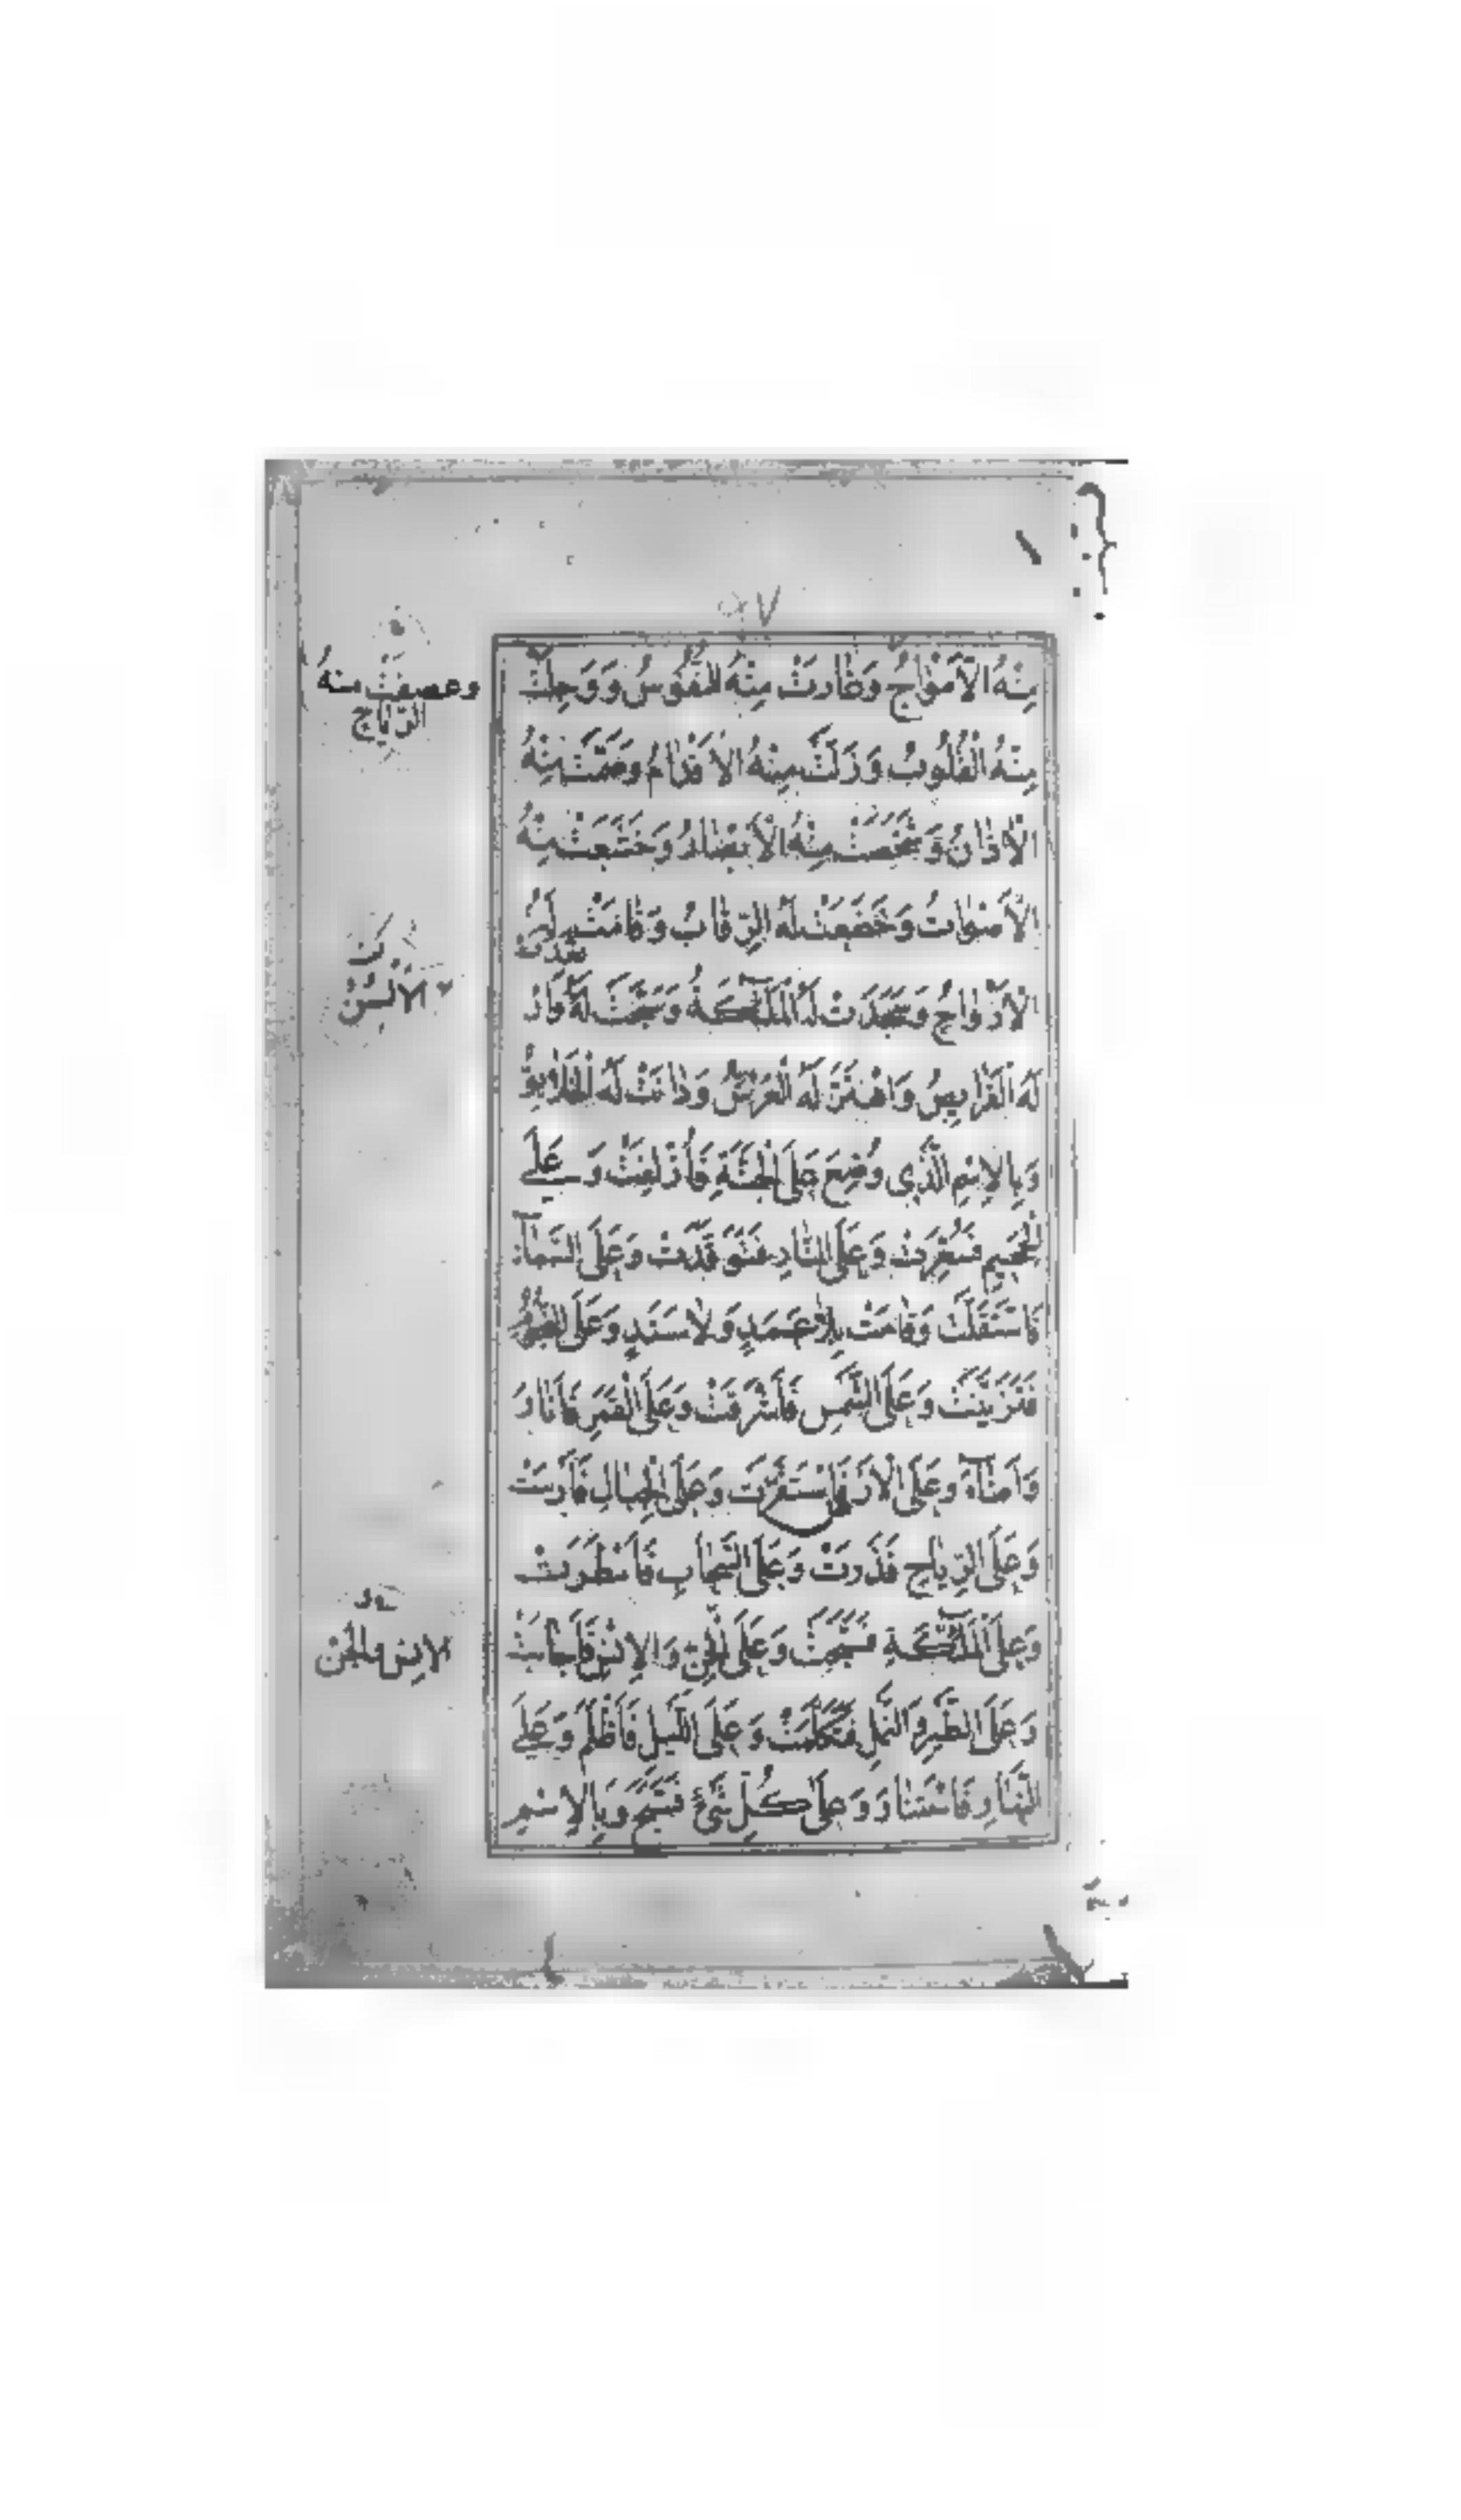 ٩٧
مِنْهُ الْاَمْوٰاجُ وَطٰارَتْ مِنْهُ النُّفُوسُ وَوَجِلَتْ
وعصفت منهُ
الرّياح
مِنْهُ الْقُلُوبُ وَزَلَّتْ مِنْهُ الْاَقْدٰامُ وَصَمَّتْ مِنْهُ
الْاٰذٰانُ وَشَخَصَتْ مِنْهُ الْاَبْصٰارُ وَخَشَعَتْ مِنْهُ
الْاَصْوٰاتُ وَخَضَعَتْ لَهُ الرِّقٰابُ وَقٰامَتْ لَهُ
الْاَرْوٰاحُ وَسَجَدَتْ لَهُ الْمَلٰٓئِكَةُ وَسَبَّحَتْ لَهُ وَارْ
تعدت
الألسن
لَهُ الْفَرٰايِصُ وَاهْتَزَّ لَهُ الْعَرْشُ وَدٰانَتْ لَهُ الْخَلٰايِقُ
وَبِالْاِسْمِ الَّذِي وُضِعَ عَلَى الْجَنَّةِ فَاُزْلِفَتْ وَعَلَى
الْجَحِيمِ فَسُعِّرَتْ وَعَلَى النّٰارِ فَتَوَقَّدَتْ وَعَلَى السَّمٰآءِ
فَاسْتَقَلَّتْ وَقٰامَتْ بِلٰا عَمَدٍ وَلٰا سَنَدٍ وَعَلَى النُّجُومِ
فَتَزَيَّنَتْ وَعَلَى الشَّمْسِ فَاَشْرَقَتْ وَعَلَى الْقَمَرِ فَاَنٰارَ
وَاَضٰآءَ وَعَلَى الْاَرْضِ فَاسْتَقَرَّتْ وَعَلَى الْجِبٰالِ فَاَرْسَتْ
وَعَلَى الرِّيٰاحِ فَذَرَتْ وَعَلَى السَّحٰابِ فَاَمْطَرَتْ
وَعَلَى الْمَلٰٓئِكَةِ فَسَبَّحَتْ وَعَلَى الْجِنِّ وَالْاِنْسِ فَاَجٰابَتْ
الإنس والجن
وَعَلَى الطَّيْرِ وَالنَّمْلِ فَتَكَلَّمَتْ وَعَلَى اللَّيْلِ فَاَظْلَمَ وَعَلَى
النَّهٰارِ فَاسْتَنٰارَ وَعَلٰى كُلِّ شَيْءٍ فَسَبَّحَ وَبِالْاِسْمِ